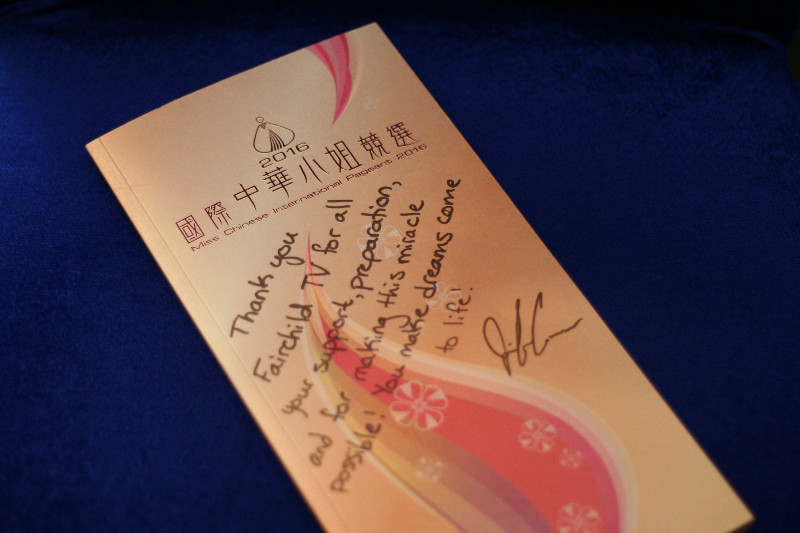 2016
國際中華小姐競選
Miss Chinese International Pageant 2016
Thank you
Fairchild TV for all
your support, preparation,
and for making this miracle
possible! You make dreams come
to life!